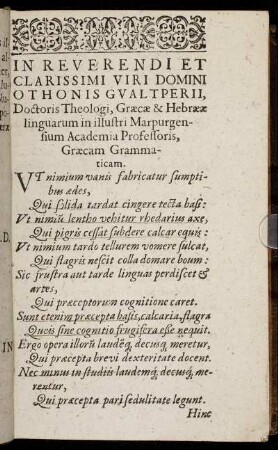 IN REVERENDI ET
CLARISSIMI VIRI DOMINI
OTHONIS GVALTPERII,
Doctoris Theologi, Græcæ & Hebrææ
linguarum in illustri Marpurgen-
sium Academia Professoris,
Græcam Gramma-
ticam.
VT nimium vanis fabricatur sumpti-
bus ædes,
Qui solida tardat cingere tecta basi:
Vt nimiũ lentho vehitur rhedarius axe,
Qui pigris cessat subdere calcar equis:
Vt nimium tardo tellurem vomere sulcat,
Qui flagris nescit colla domare boum:
Sic frustra aut tarde linguas perdiscet &
artes,
Qui præceptorum cognitione caret.
Sunt etenim præcepta basis, calcaria, flagra
Queis sine cognitio frugifera esse nequit.
Ergo opera illorũ laudẽq, decusq, meretur,
Qui præcepta brevi dexteritate docent.
Nec minus in studiis laudemq, decusq, me-
rentur,
Qui præcepta pari sedulitate legunt.
Hinc
D.
IN